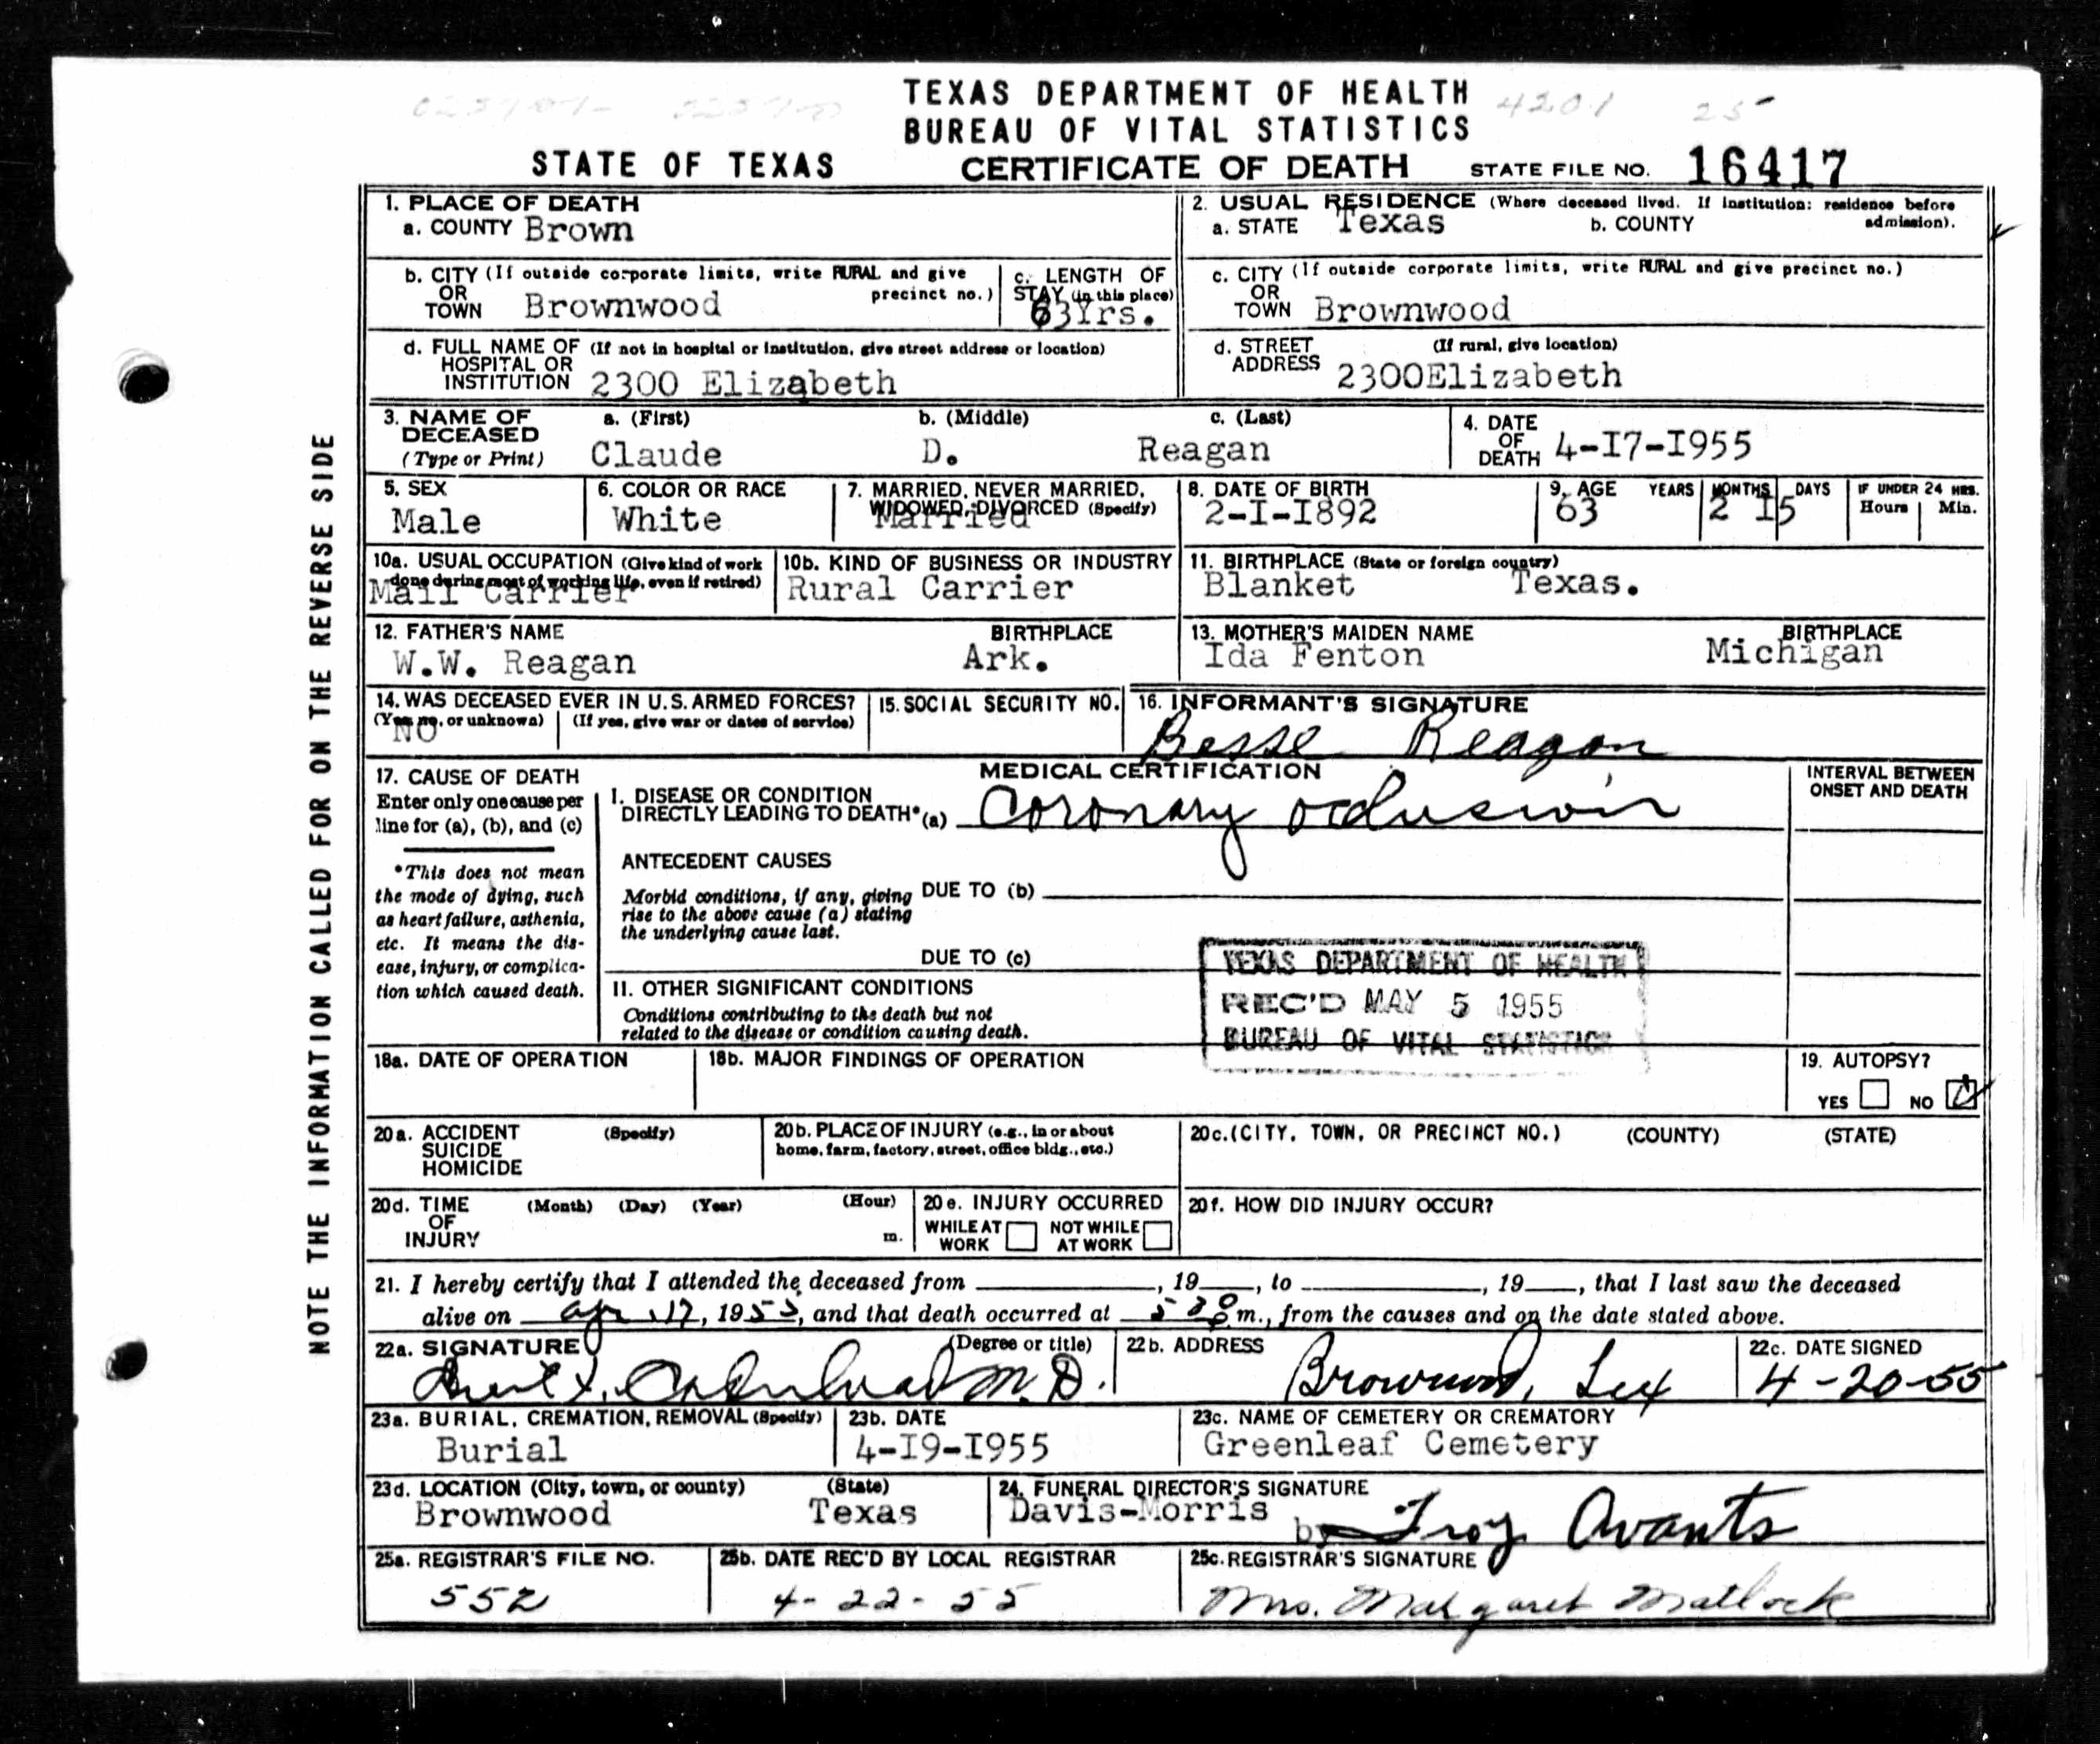 TEXAS DEPARTMENT OF HEALTH
BUREAU OF VITAL STATISTICS
4201 25
STATE OF TEXAS CERTIFICATE OF DEATH STATE FILE NO. 16417
NOTE THE INFORMATION CALLED FOR ON THE REVERSE SIDE
1. PLACE OF DEATH
a. COUNTY Brown
2. USUAL RESIDENCE (Where deceased lived. If institution: residence before admission).
a. STATE Texas b. COUNTY
b. CITY (If outside corporate limits, write RURAL and give precinct no.)
OR
TOWN Brownwood
c. LENGTH OF
STAY (in this place)
63Yrs.
c. CITY (If outside corporate limits, write RURAL and give precinct no.)
OR
TOWN Brownwood
d. FULL NAME OF (If not in hospital or institution, give street address or location)
HOSPITAL OR
INSTITUTION 2300 Elizabeth
d. STREET (If rural, give location)
ADDRESS 2300Elizabeth
3. NAME OF DECEASED (Type or Print)
a. (First) b. (Middle) c. (Last)
Claude D. Reagan
4. DATE
OF
DEATH 4-I7-I955
5. SEX
Male
6. COLOR OR RACE
White
7. MARRIED, NEVER MARRIED,
WIDOWED, DIVORCED (Specify)
Married
8. DATE OF BIRTH
2-I-I892
9. AGE YEARS MONTHS DAYS IF UNDER 24 HRS.
Hours Min.
63 2 I5
10a. USUAL OCCUPATION (Give kind of work
done during most of working life, even if retired)
Mail Carrier
10b. KIND OF BUSINESS OR INDUSTRY
Rural Carrier
11. BIRTHPLACE (State or foreign country)
Blanket Texas.
12. FATHER'S NAME BIRTHPLACE
W.W. Reagan Ark.
13. MOTHER'S MAIDEN NAME BIRTHPLACE
Ida Fenton Michigan
14. WAS DECEASED EVER IN U.S. ARMED FORCES?
(Yes, no, or unknown) (If yes, give war or dates of service)
NO
15. SOCIAL SECURITY NO.
16. INFORMANT'S SIGNATURE
Besse Reagan
17. CAUSE OF DEATH
Enter only one cause per
line for (a), (b), and (c)
*This does not mean
the mode of dying, such
as heart failure, asthenia,
etc. It means the dis-
ease, injury, or complica-
tion which caused death.
MEDICAL CERTIFICATION
I. DISEASE OR CONDITION
DIRECTLY LEADING TO DEATH* (a) Coronary occlusion
ANTECEDENT CAUSES
Morbid conditions, if any, giving
rise to the above cause (a) stating
the underlying cause last.
DUE TO (b)
DUE TO (c)
II. OTHER SIGNIFICANT CONDITIONS
Conditions contributing to the death but not
related to the disease or condition causing death.
INTERVAL BETWEEN
ONSET AND DEATH
TEXAS DEPARTMENT OF HEALTH
REC'D MAY 5 1955
BUREAU OF VITAL STATISTICS
18a. DATE OF OPERATION
18b. MAJOR FINDINGS OF OPERATION
19. AUTOPSY?
YES NO
20a. ACCIDENT (Specify)
SUICIDE
HOMICIDE
20b. PLACE OF INJURY (e.g., in or about
home, farm, factory, street, office bldg., etc.)
20c. (CITY, TOWN, OR PRECINCT NO.) (COUNTY) (STATE)
20d. TIME (Month) (Day) (Year) (Hour)
OF
INJURY m.
20e. INJURY OCCURRED
WHILE AT WORK NOT WHILE AT WORK
20f. HOW DID INJURY OCCUR?
21. I hereby certify that I attended the deceased from , 19 , to , 19 , that I last saw the deceased
alive on Apr. 17, 1955, and that death occurred at m., from the causes and on the date stated above.
22a. SIGNATURE (Degree or title)
M.D.
22b. ADDRESS
Brownwood, Tex
22c. DATE SIGNED
4-20-55
23a. BURIAL, CREMATION, REMOVAL (Specify)
Burial
23b. DATE
4-I9-I955
23c. NAME OF CEMETERY OR CREMATORY
Greenleaf Cemetery
23d. LOCATION (City, town, or county) (State)
Brownwood Texas
24. FUNERAL DIRECTOR'S SIGNATURE
Davis-Morris by Troy Avants
25a. REGISTRAR'S FILE NO.
552
25b. DATE REC'D BY LOCAL REGISTRAR
4-22-55
25c. REGISTRAR'S SIGNATURE
Mrs. Margaret Matlock